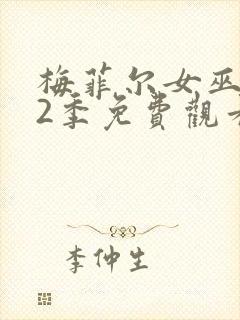 梅菲尔女巫
2季免費觀看
李仲生